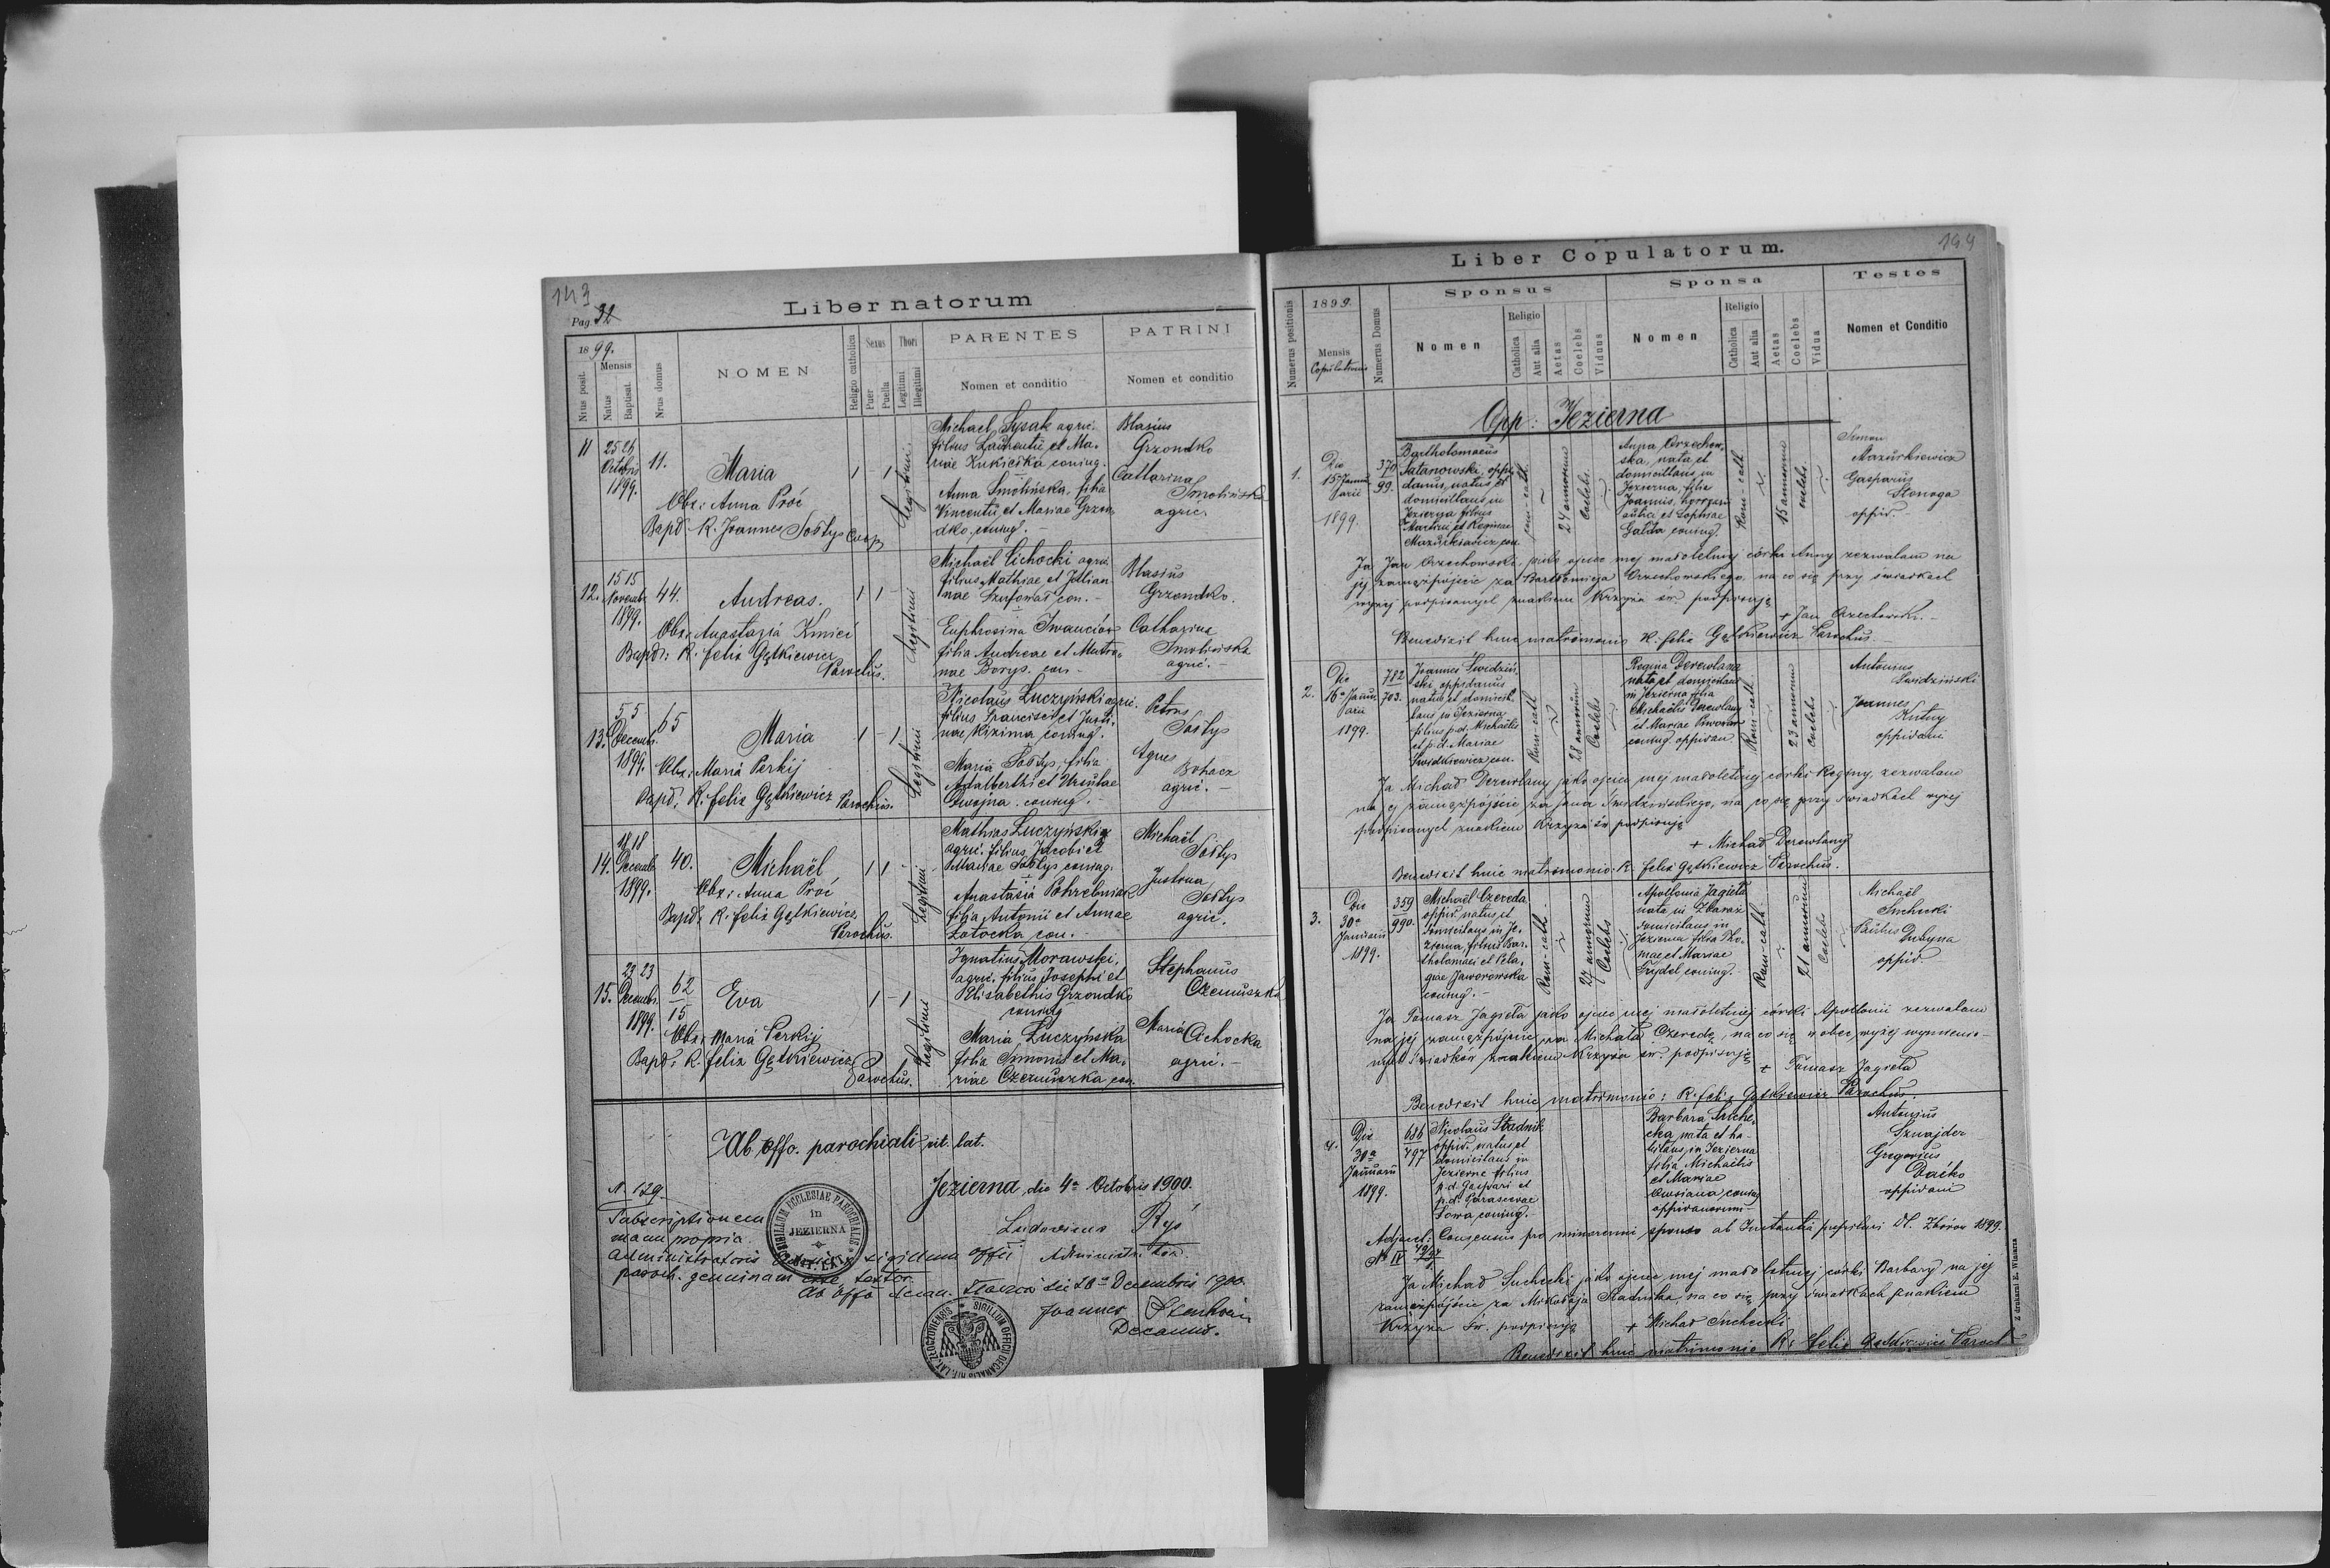 143
Pag. 32
Liber natorum
1899.
Nrus posit.
Mensis
Natus
Baptisat.
Nrus domus
NOMEN
Religio catholica
Sexus
Puer
Puella
Thori
Legitimi
Illegitimi
PARENTES
Nomen et conditio
PATRINI
Nomen et conditio
11
25 26
Octobris
1899.
11.
Maria
1 - 1
Legitimi
Obs: Anna Proć
Bapd. R. Joannes Sołtys Coop
Michael Sysak agric.
filius Laurentii et Ma-
riae coniug.
Anna Smolińska, filia
Vincentii et Mariae Grzon
dko, coniug.
Blasius
Grzondko
Catharina
Smolińska
agric.
12.
15 15
Novemb.
1899.
44.
Andreas.
1 1 -
Legitimi
Obs: Anastazia Kmieć
Bapd: R. Felix Gątkiewicz
Parochus.
Michaël Cichocki agric.
filius Mathiae et Julian
nae con.
Euphrosina Iwanciów
filia Andreae et Matro-
nae Borys. con.
Blasius
Grzondko.
Catharina
Smolińska
agric. -
13.
5 5
Decemb.
1899.
65
Maria
1 - 1
Legitimi
Obs: Maria Perkij
Bapd: R. Felix Gątkiewicz Parochus.
Nicolaus Łuczyński agric.
filius Francisci et Justi-
nae Kizima coniug.
Maria Sołtys, filia
Adalberthi et Ursulae
Dwojna. coniug. -
Petrus
Sołtys
Agnes
Bohacz
agric. -
14.
18 18
Decemb.
1899.
40.
Michaël
1 1 -
Legitimi
Obs: Anna Proć
Bapd: R. Felix Gątkiewicz
Parochus.
Mathias Łuczyński
agric. filius Jacobi et
Mariae Sołtys coniug.
Anastasia Pohrebniak
filia Antonii et Annae
Zatocka con. -
Michaël
Sołtys
Justina
Sołtys
agric. -
15.
23 23
Decemb.
1899.
62
15
Eva
1 - 1
Legitimi
Obs: Maria Perkij
Bapd: R. Felix Gątkiewicz
Parochus.
Ignatius Morawski,
agric. filius Josephi et
Elisabethis Grzondko
coniug
Maria Łuczyńska
filia Simonis et Ma-
riae Czemuszka con.
Stephanus
Czemuszka
Maria Cichocka
agric. -
Ab offo. parochiali rit. lat.
Jezierna, die 4a Octobris 1900.
N. 129.
manu propria
administratoris
paroch. genuinam esse testor
SIGILLUM ECCLESIAE PAROCHIALIS
in
JEZIERNA
RIT. LAT.
Ludovicus Ryś
Administrator.
Ab offo decan. die 20a Decembris 1900.
Joannes
Decanus.
SIGILLUM OFFICII DECANALIS RIT. LAT. ZŁOCZOVIENSIS
144
Liber Copulatorum.
Numerus positionis
1899.
Mensis
Copulationis
Numerus Domus
Sponsus
Nomen
Religio
Catholica
Aut alia
Aetas
Coelebs
Viduus
Sponsa
Nomen
Religio
Catholica
Aut alia
Aetas
Coelebs
Vidua
Testes
Nomen et Conditio
Opp: Jezierna
1.
Die
15a Janu-
arii
1899.
370
99.
Bartholomaeus
Satanowski, oppi-
danus, natus et
domicilians in
Jezierna filius
Martini et Reginae
Mazurkiewicz con.
Rom-cath.
24 annorum
Coelebs
Anna Orzechow-
ska, nata et
domicilians in
Jezierna, filia
Joannis,
et Sophiae
Gałda coniug.
Rom-cath.
15 annorum
coelebs
Simon
Mazurkiewicz
Gasparus
Stonoga
oppid.
Ja Jan Orzechowski jako ojciec mej małoletniej córki Anny zezwalam na
jej zamążpójście za Bartłomieja Orzechowskiego, na co się przy świadkach
wyżej podpisanych znakiem Krzyża św. podpisuję
+ Jan Orzechowski. -
Benedixit huic matrimonio R. Felix Gątkiewicz Parochus. -
2.
Die
16a Janu-
arii
1899.
782
703.
Joannes Świdziń-
ski oppidanus
natus et domici-
lians in Jezierna
filius p.d. Michaëlis
et p.d. Mariae
Świdkiewicz con.
Rom-cath
28 annorum
Coelebs
Regina Derewlana
nata et domicilians
in Jezierna filia
Michaëlis Derewlany
et Mariae
coniug. oppidan
Rom-cath.
23 annorum
coelebs
Antonius
Świdziński
Joannes
Kutny
oppidani
Ja Michał Derewlany jako ojciec mej małoletniej córki Reginy, zezwalam
na jej zamążpójście za Jana Świdzińskiego, na co się przy świadkach wyżej
podpisanych znakiem Krzyża św podpisuję
+ Michał Derewlany
Benedixit huic matrimonio: R. Felix Gątkiewicz Parochus.
3.
Die
30a
Januarii
1899.
359
990.
Michaël Czereda
oppid. natus et
domicilians in Je-
zierna, filius Bar-
tholomaei et Pela-
giae Jaworowska
coniug. -
Rom-cath.
27 annorum
Coelebs
Apollonia Jagieła
nata in Zbaraż
domicilians in
Jezierna filia Tho-
mae et Mariae
Frydel coniug. -
Rom-cath.
21 annorum
Coelebs
Michaël
Suchecki
Paulus
Dubyna
oppid
Ja Tomasz Jagieła jako ojciec mej małoletniej córki Apolonii zezwalam
na jej zamążpójście za Michała Czeredę, na co się wobec wyżej wymienio-
nych świadków znakiem Krzyża św. podpisuję
+ Tomasz Jagieła
Benedixit huic matrimonio: R. Felix Gątkiewicz Parochus.
4.
Die
30a
Januarii
1899.
686
497
Nicolaus Stadnik
oppid. natus et
domicilians in
Jezierne filius
p.d. Gaspari et
p.d. Parascevae
Sowa coniug.
Barbara Suche-
cka, nata et ha-
bitans in Jezierna
filia Michaëlis
et Mariae
Owsiana coniug
oppidanorum
Antonius
Sznajder
Gregorius
Daćko
oppidani
Adject: Consensus pro minorenni sponso ab Instantia pupilari Dl. Zborów 1899.
No IV 49/94
1.
Ja Michał Suchecki jako ojciec mej małoletniej córki Barbary na jej
zamążpójście za Mikołaja Stadnika, na co się przy świadkach znakiem
Krzyża św. podpisuję + Michał Suchecki
Benedixit huic matrimonio R. Felix Gątkiewicz Paroch
Z drukarni E. Wintera